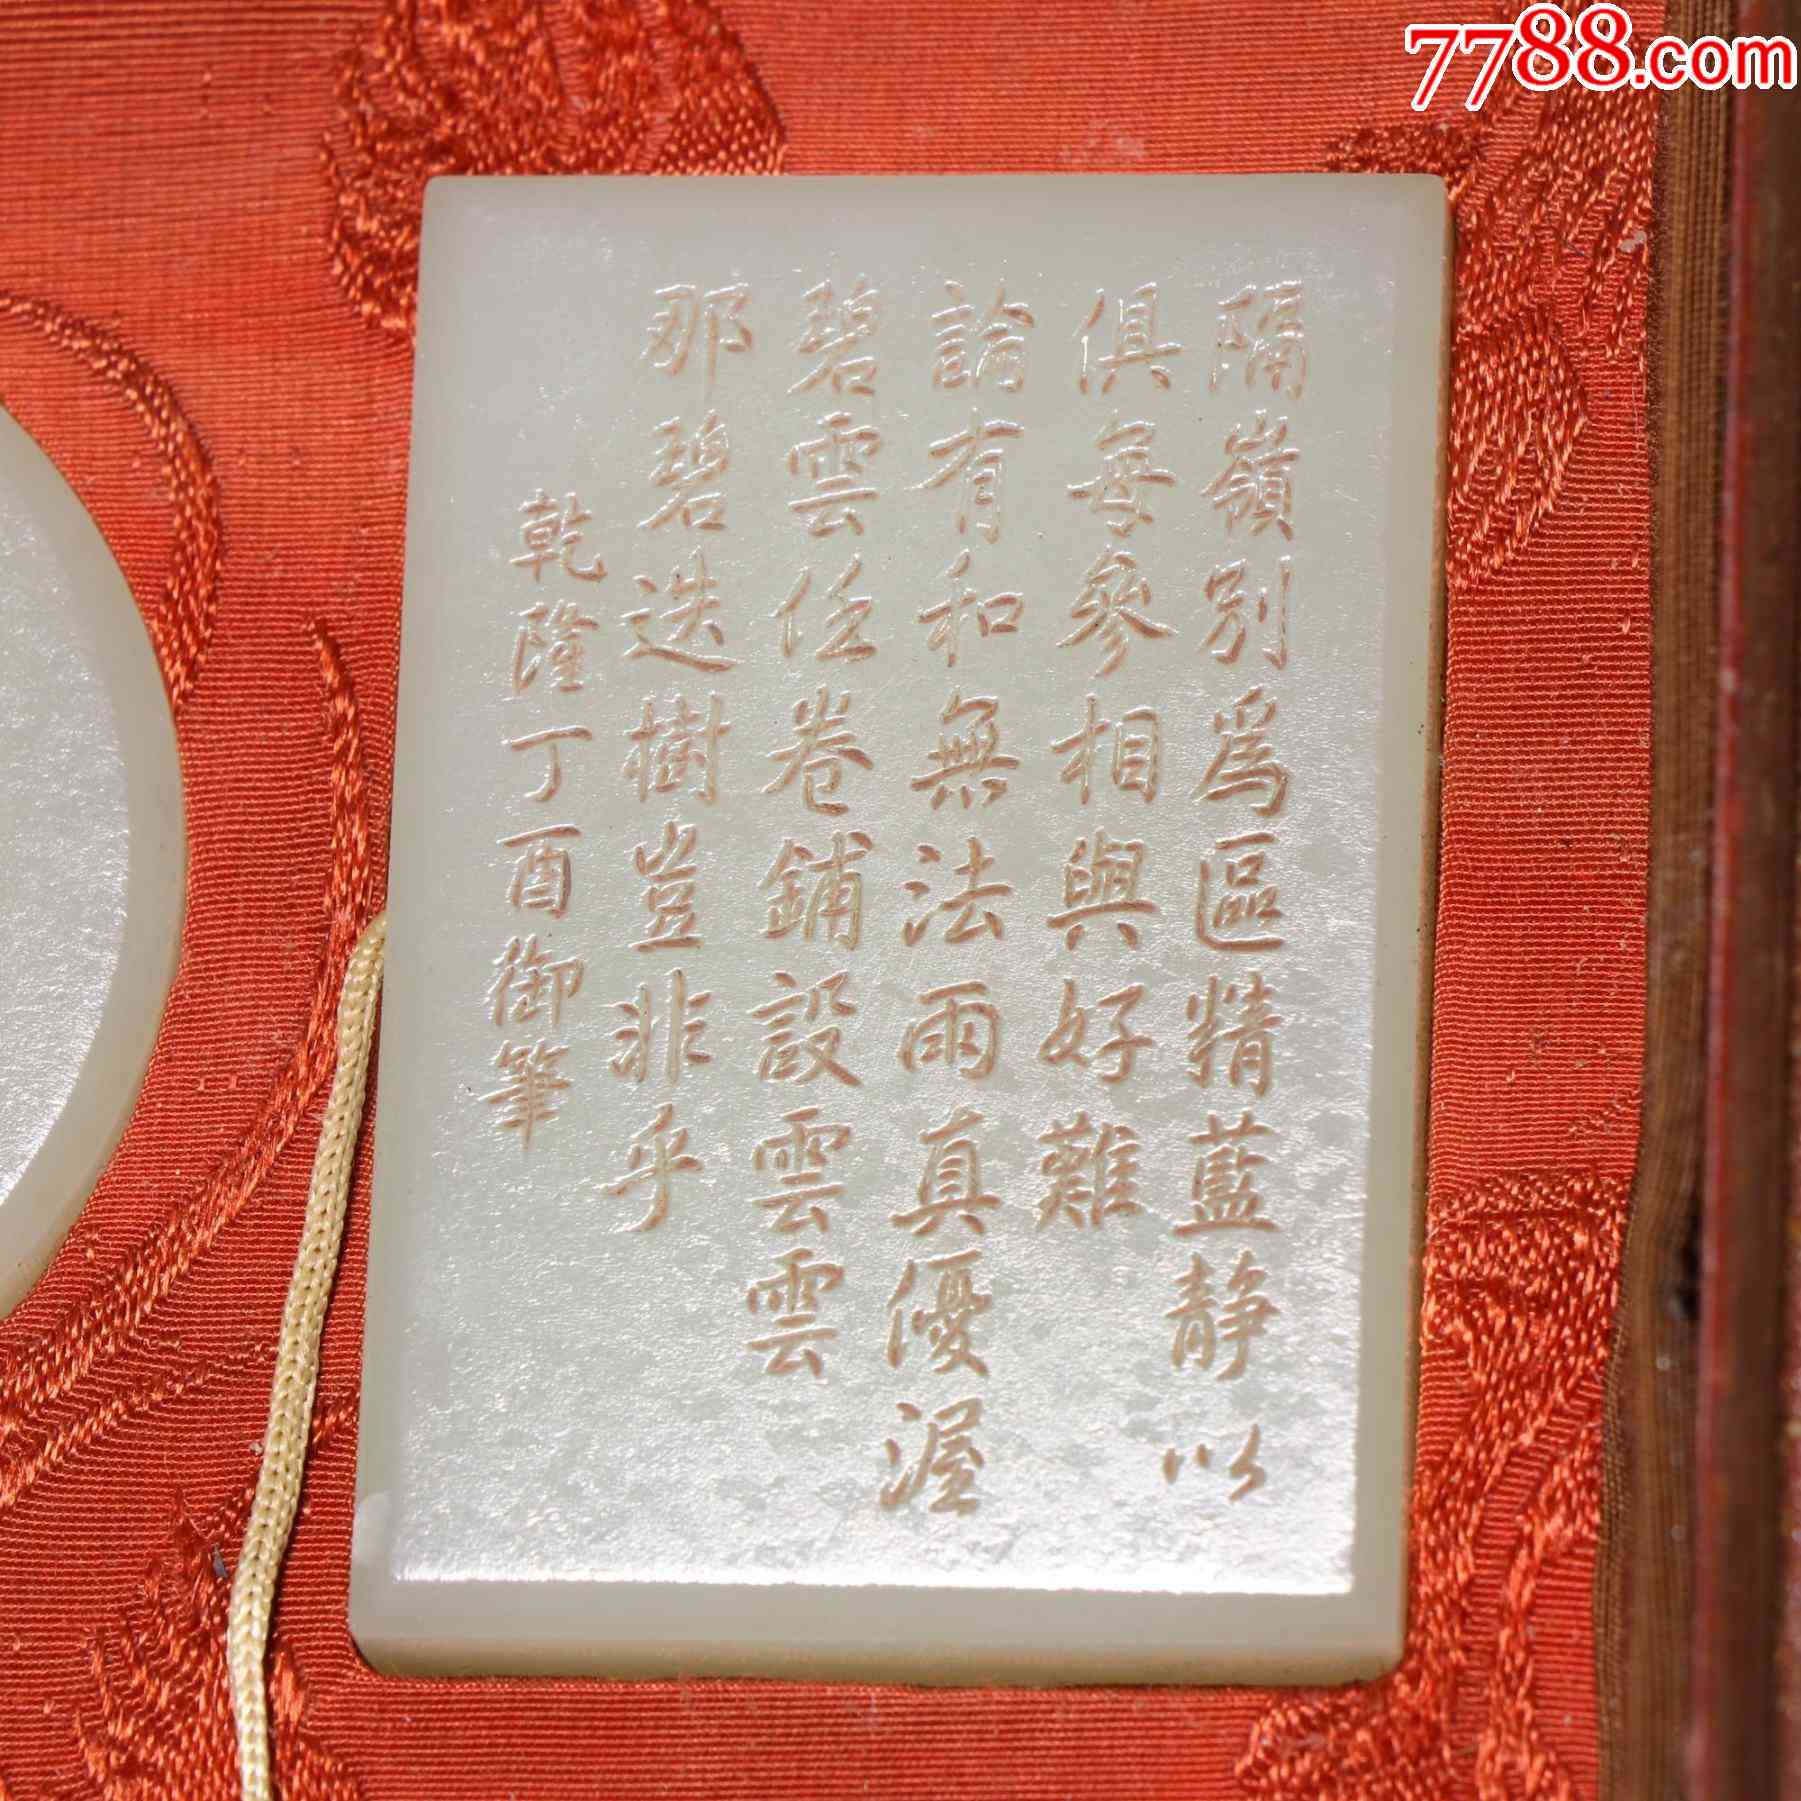 7788.com
隔嶺別爲區精藍静以
俱每參相與好難
論有和無法雨真優渥
碧雲任卷鋪設雲雲
那碧迭樹豈非乎
乾隆丁酉御筆